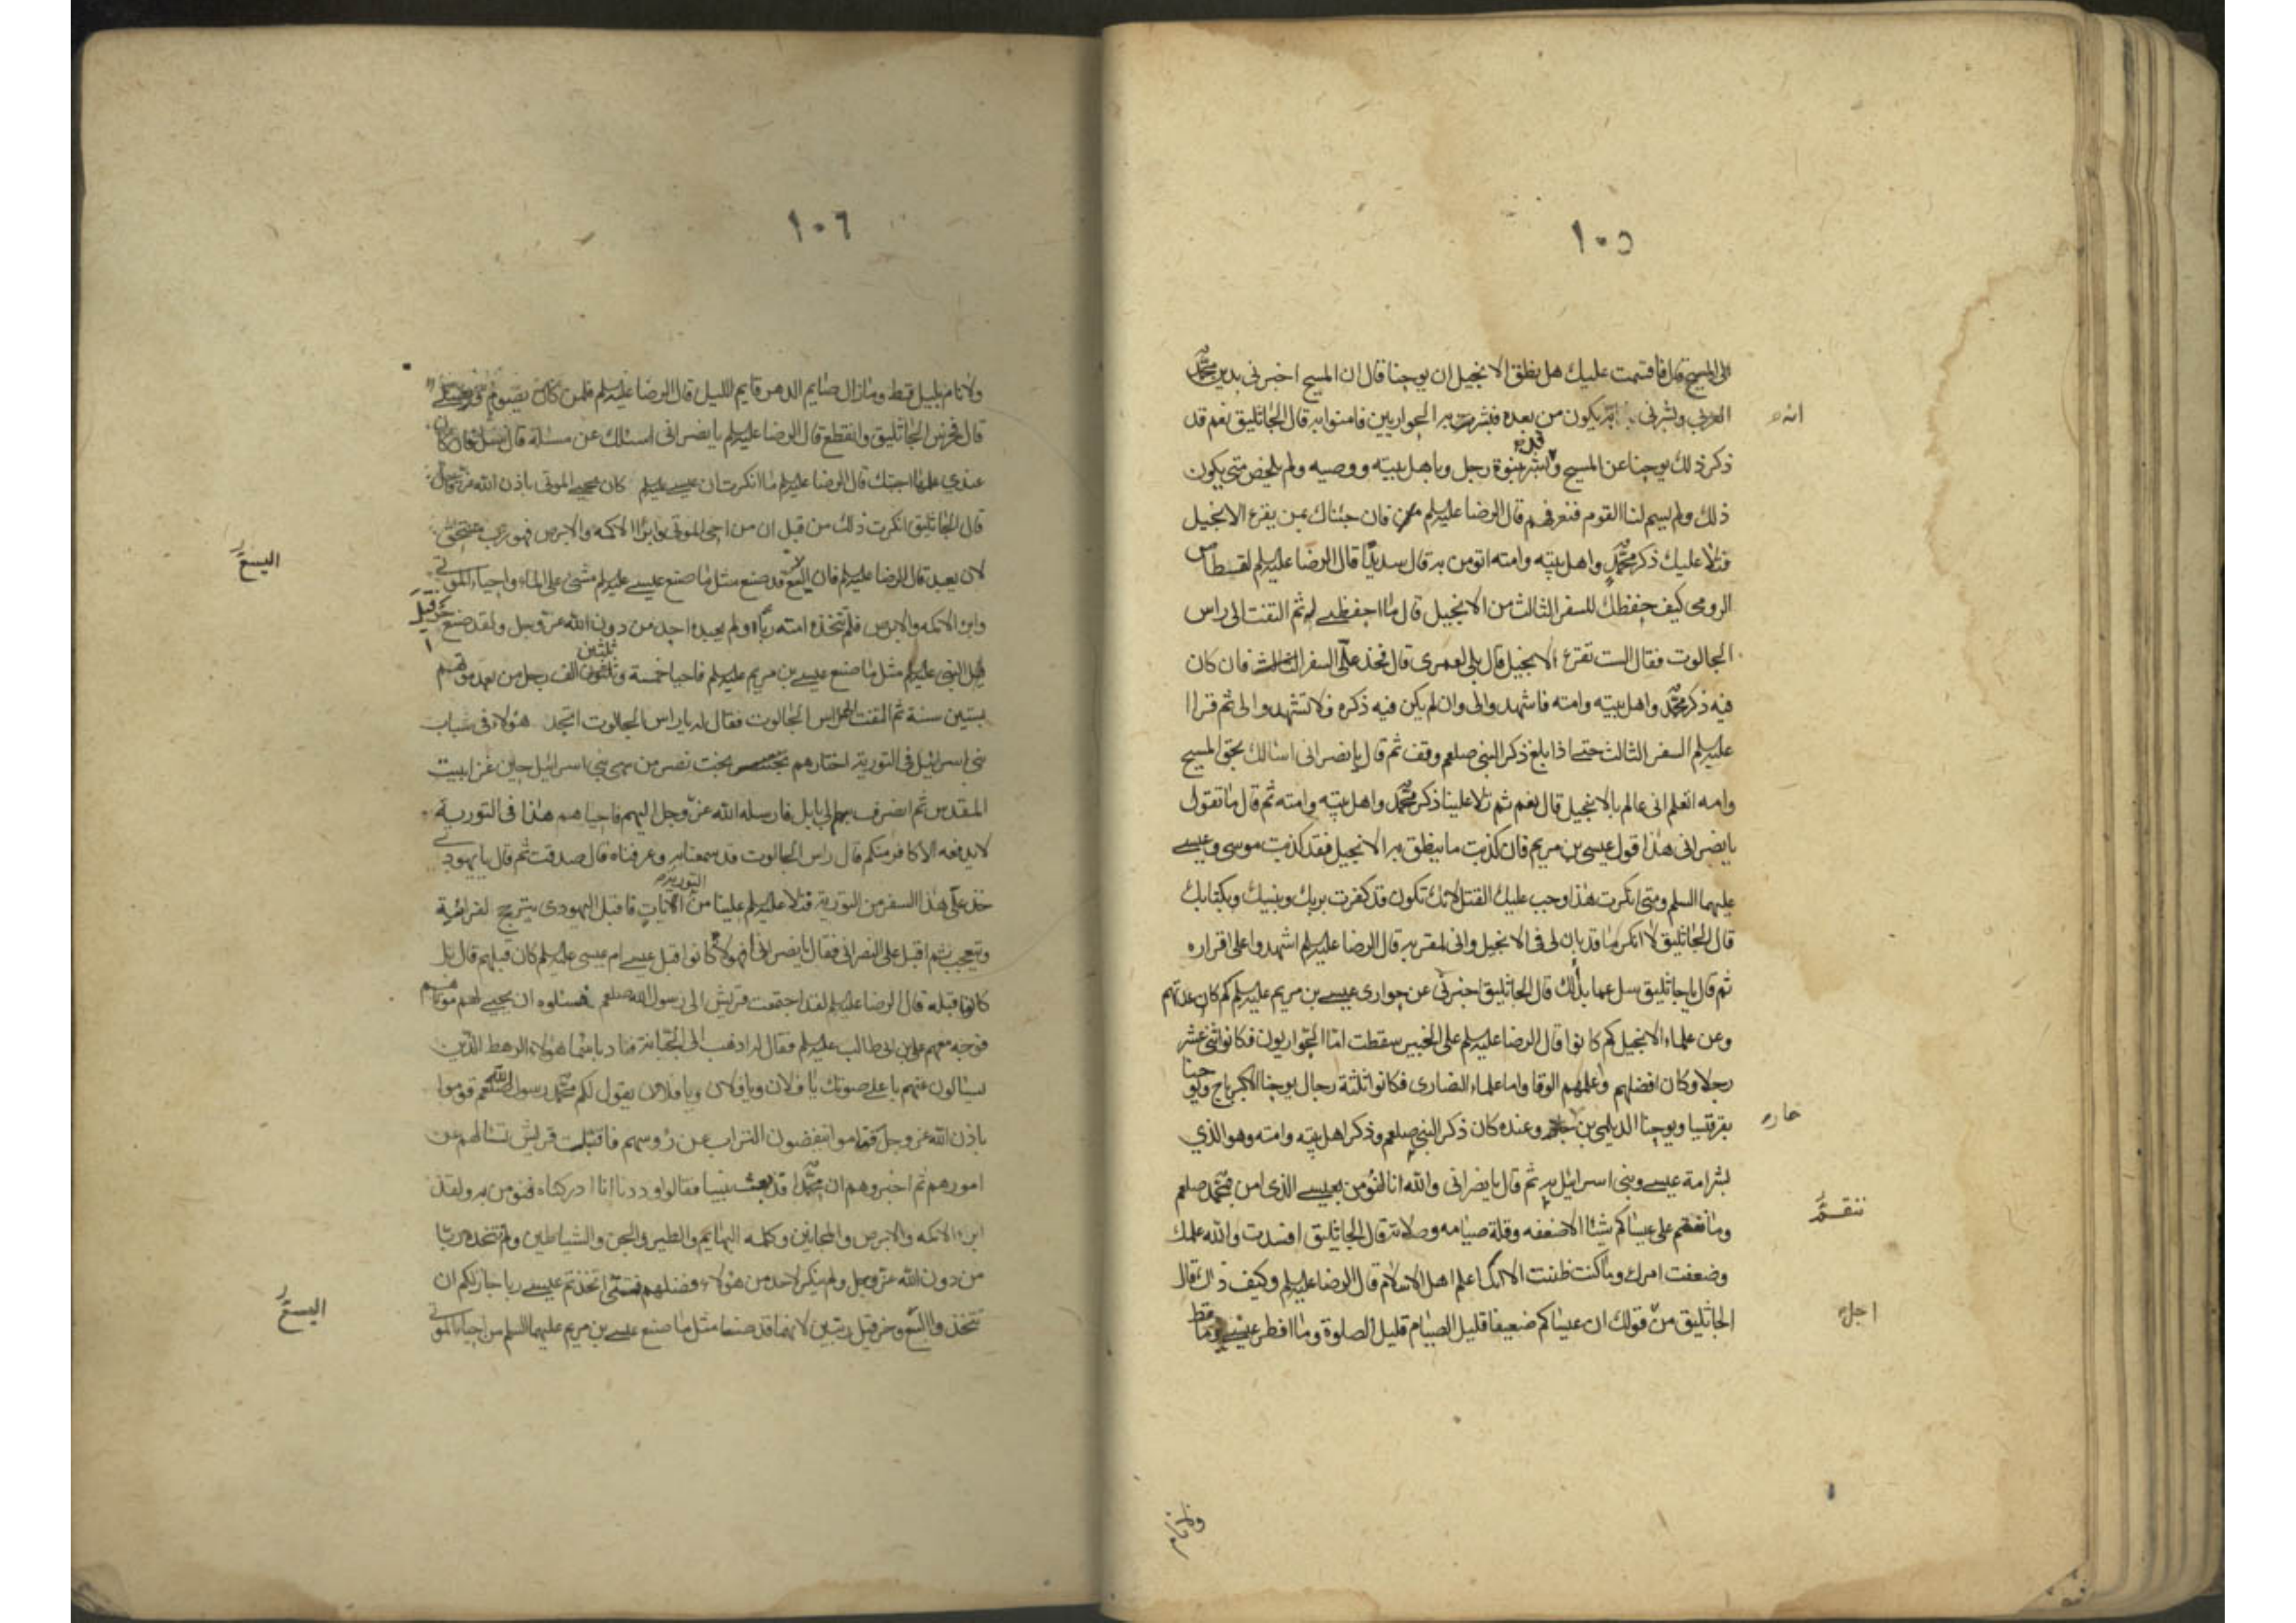 ١٠٥
الى المسيح قال فاقسمت عليك هل نطق الانجيل ان يوحنا قال ان المسيح اخبرني بدين محمد
العربي وبشرني به انه يكون من بعده فبشرت به الحواريين فامنوا به قال الجاثليق نعم قد
انه
ذكر ذلك يوحنا عن المسيح وبشر بنبوة رجل وباهل بيته ووصيه ولم يلخص متى يكون
ذلك ولم يسم لنا القوم فنعرفهم قال الرضا عليه السلم فان جئناك بمن يقرء الانجيل
فتلا عليك ذكر محمد واهل بيته وامته اتومن به قال سديدا قال الرضا عليه السلم لقسطاس
الرومى كيف حفظك للسفر الثالث من الانجيل قال ما احفظنى له ثم التفت الى راس
الجالوت فقال الست تقرء الانجيل قال بلى لعمرى قال فخذ على السفر الثالث فان كان
فيه ذكر محمد واهل بيته وامته فاشهدوا لى وان لم يكن فيه ذكره فلا تشهدوا لى ثم قرا
عليه السلم السفر الثالث حتى اذا بلغ ذكر النبى صلعم وقف ثم قال يا نصرانى اسالك بحق المسيح
وامه اتعلم انى عالم بالانجيل قال نعم ثم تلا علينا ذكر محمد واهل بيته وامته ثم قال ما تقول
يا نصرانى هذا قول عيسى بن مريم فان كذبت ما ينطق به الانجيل فقد كذبت موسى وعيسى
عليهما السلم ومتى انكرت هذا وجب عليك القتل لانك تكون قد كفرت بربك وبنبيك وبكتابك
قال الجاثليق لا انكر ما قد بان لى فى الانجيل وانى لمقر به قال الرضا عليه السلم اشهدوا على اقراره
ثم قال يا جاثليق سل عما بدا لك قال الجاثليق اخبرنى عن حوارى عيسى بن مريم عليه السلم كم كان عدتهم
وعن علماء الانجيل كم كانوا قال الرضا عليه السلم على الخبير سقطت اما الحواريون فكانوا اثنى عشر
رجلا وكان افضلهم واعلمهم الوقا واما علماء النصارى فكانوا ثلثة رجال يوحنا الاكبر باج ويوحنا
بقرقيسيا ويوحنا الديلمى بن وعنده كان ذكر النبى صلعم وذكر اهل بيته وامته وهو الذي
بشر امة عيسى وبنى اسرائيل به ثم قال يا نصرانى والله انا لنؤمن بعيسى الذى امن بمحمد صلعم
وما ننقم على عيساكم شيئا الا ضعفه وقلة صيامه وصلاته قال الجاثليق افسدت والله علمك
ننقم
وضعفت امرك وما كنت ظننت الا انك اعلم اهل الاسلام قال الرضا عليه السلم وكيف ذلك قال
الجاثليق من قولك ان عيساكم ضعيفا قليل الصيام قليل الصلوة وما افطر عيسى يوما قط
ولانام
١٠٦
ولا نام بليل قط وما زال صايم الدهر قايم الليل قال الرضا عليه السلم فلمن كان يصوم ويصلى
قال فخرس الجاثليق وانقطع قال الرضا عليه السلم يا نصرانى اسئلك عن مسئلة قال سل فان كان
عندى علمها اجبتك قال الرضا عليه السلم ما انكرت ان عيسى عليه السلم كان يحيى الموتى باذن الله عز وجل
قال الجاثليق انكرت ذلك من قبل ان من احيى الموتى وابرا الاكمه والابرص فهو رب مستحق
لان يعبد قال الرضا عليه السلم فان اليسع قد صنع مثل ما صنع عيسى عليه السلم مشى على الماء واحياء الموتى
اليسع
وابرا الاكمه والابرص فلم تتخذه امته ربا ولم يعبده احد من دون الله عز وجل ولقد صنع حزقيل
النبى عليه السلم مثل ما صنع عيسى بن مريم عليه السلم فاحيا خمسة وثلثين الف رجل من بعد موتهم
بستين سنة ثم التفت الى راس الجالوت فقال له يا راس الجالوت اتجد هؤلاء فى شباب
بنى اسرائيل فى التورية اختارهم بخت نصر من سبى بنى اسرائيل حين غزا بيت
المقدس ثم انصرف بهم الى بابل فارسله الله عز وجل اليهم فاحياهم هذا فى التورية
لا يدفعه الا كافر منكم قال راس الجالوت قد سمعنا به وعرفناه قال صدقت ثم قال يا يهودى
خذ على هذا السفر من التورية فتلا عليه السلم علينا من التورية ايات فاقبل اليهودى يترجج لقرائته
ويتعجب ثم اقبل على النصرانى فقال يا نصرانى افهؤلاء كانوا قبل عيسى ام عيسى عليه السلم كان قبلهم قال بل
كانوا قبله قال الرضا عليه السلم لقد اجتمعت قريش الى رسول الله صلعم فسئلوه ان يحيى لهم موتاهم
فوجه معهم على بن ابى طالب عليه السلم فقال له اذهب الى الجبانة فناد باسماء هؤلاء الرهط الذين
يسالون عنهم باعلى صوتك يا فلان ويا فلان ويا فلان يقول لكم محمد رسول الله صلعم قوموا
باذن الله عز وجل فقاموا ينفضون التراب عن رؤسهم فاقبلت قريش تسالهم عن
امورهم ثم اخبروهم ان محمدا قد بعث نبيا فقالوا وددنا انا ادركناه فنومن به ولقد
ابرء الاكمه والابرص والمجانين وكلمه البهايم والطير والجن والشياطين ولم نتخذه ربا
من دون الله عز وجل ولم ننكر لاحد من هؤلاء فضلهم فمتى اتخذتم عيسى ربا جاز لكم ان
تتخذوا اليسع وحزقيل ربين لانهما قد صنعا مثل ما صنع عيسى بن مريم عليهما السلم من احياء الموتى
اليسع